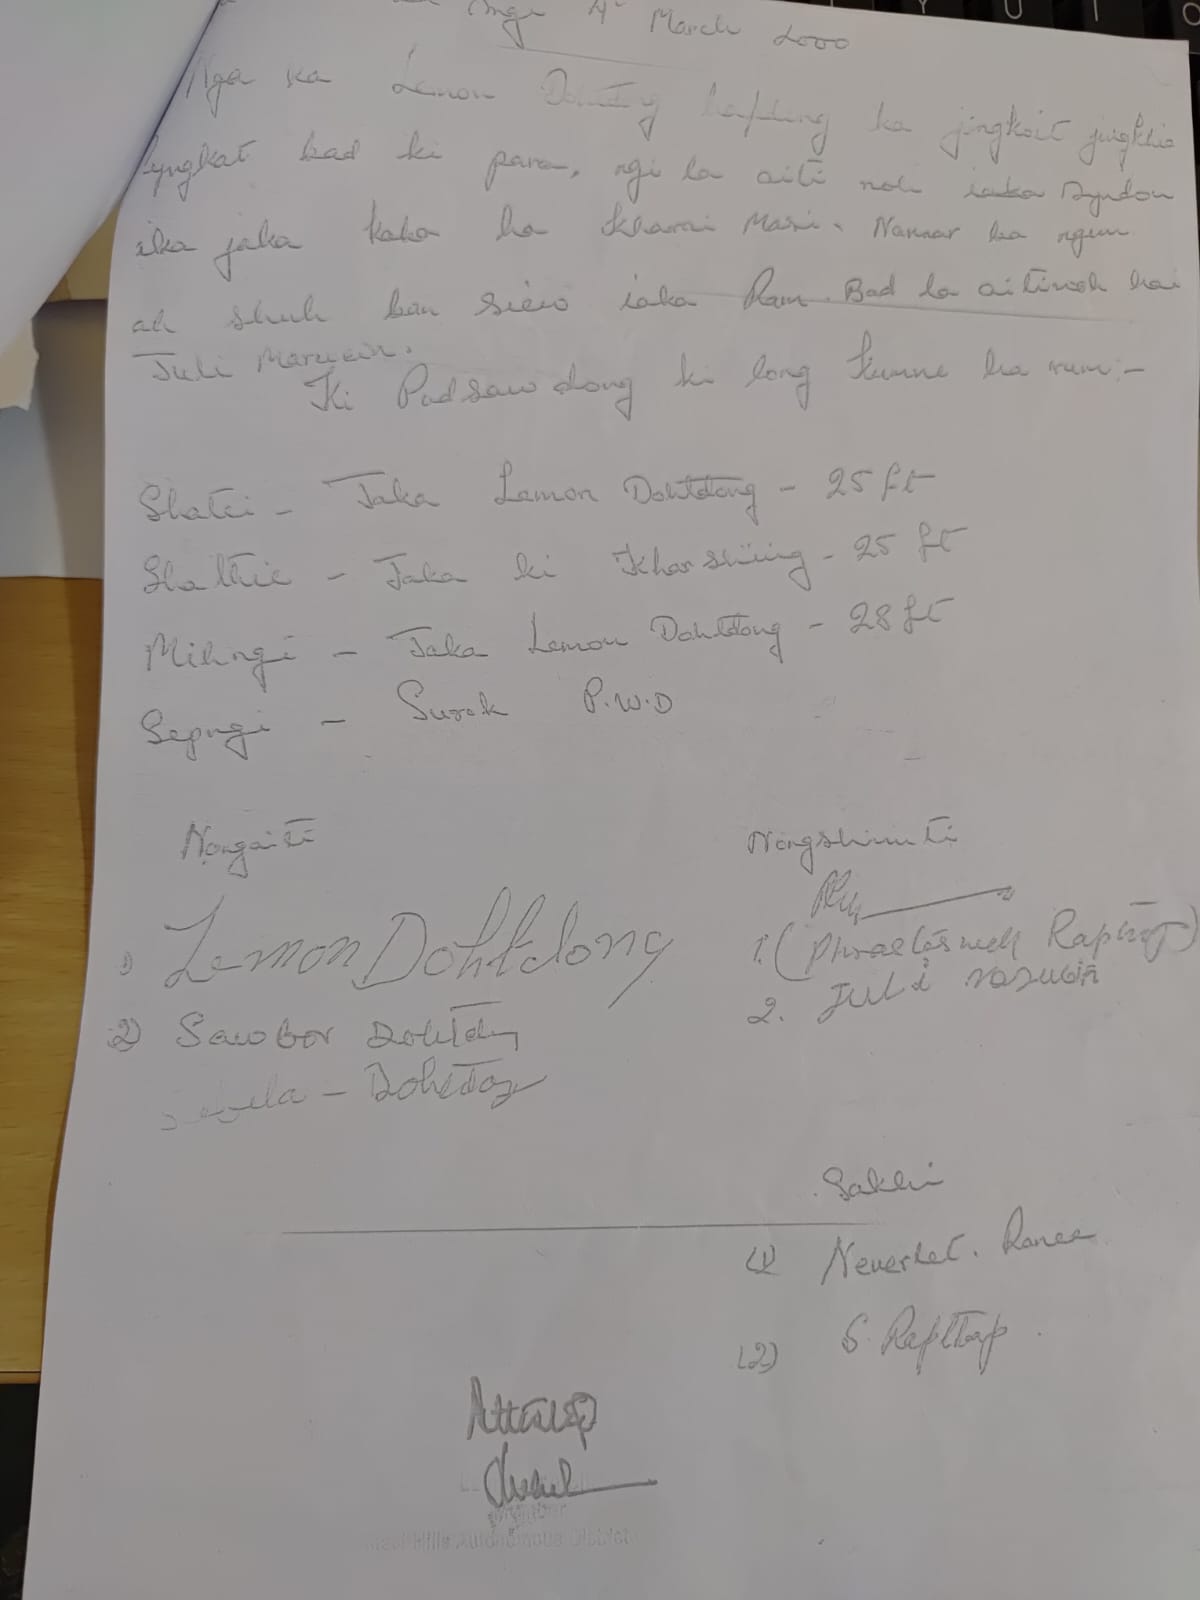 Ongi 4th March 2000
Nga ka Lemon Dohtdong hapdeng ka jingkoit jingkhia
Lyngkot bad ki para, ngi la aiti noh iaka Dyndon
ka jaka kaba ha Khami Mari. Nannar ba ngim
ah shuh ban siew iaka Ram. Bad la aitinoh hai
Juli Marwein.
Ki Pudsaw dong ki long kumne ha rum:-
Shatei - Jaka Lemon Dohtdong - 25 ft
Shathie - Jaka ki Kharshiing - 25 ft
Mihngi - Jaka Lemon Dohtdong - 28 ft
Sepngi - Surok P.W.D
Nongaiti
Nongshimti
1) Lemon Dohtdong
1. (Rapthap)
2) Sawbor Dohtdong
2. Juli
Dohtdong
Sakhi
(1) Neverlet. Ranee
(2) S. Rapthap
Attested
Hills Autonomous District